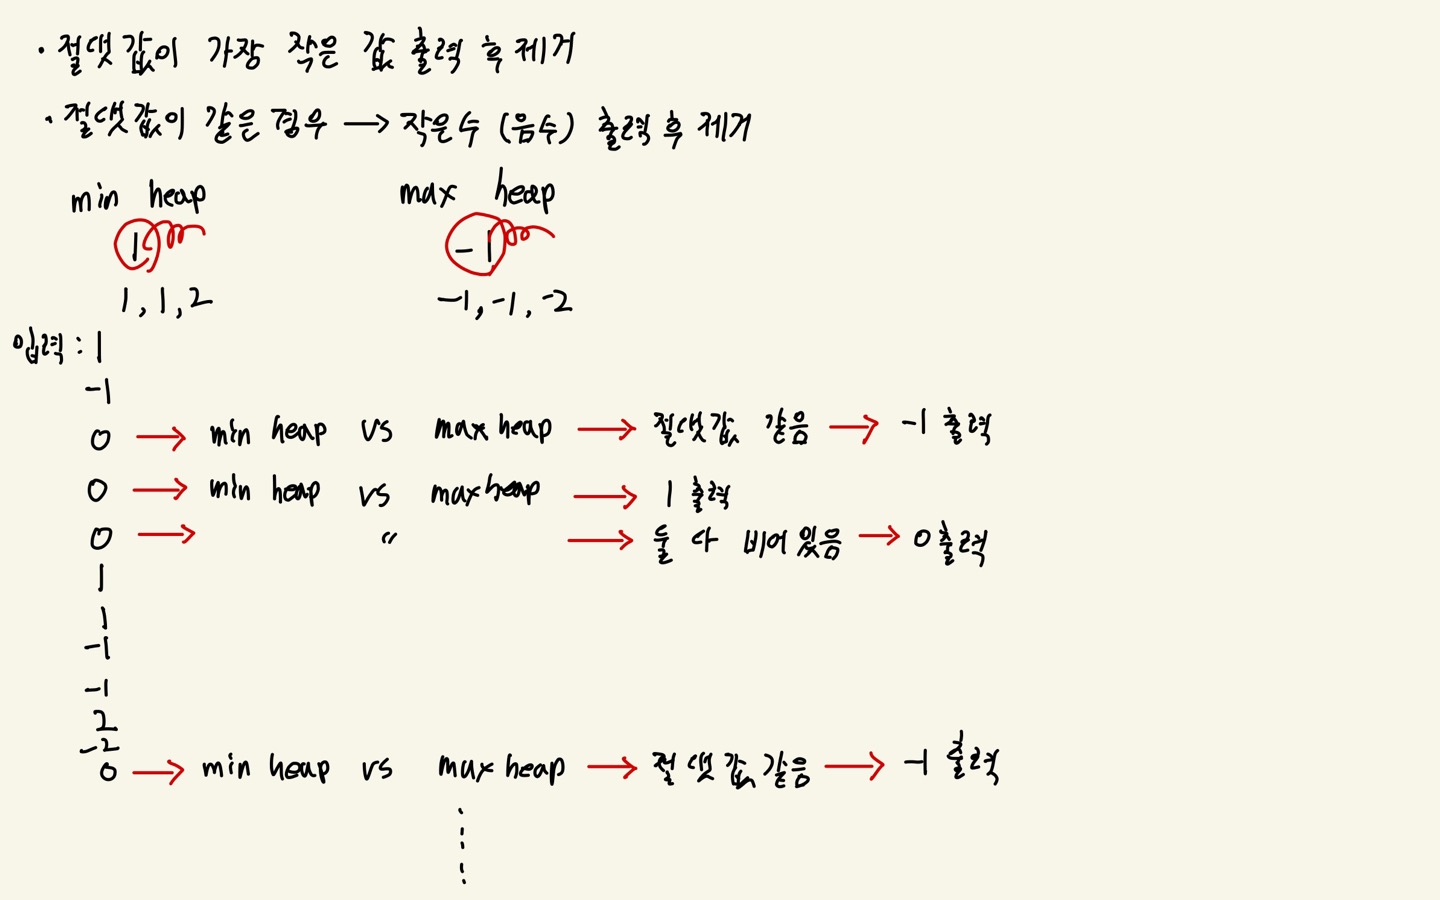 · 절댓값이 가장 작은 값 출력 후 제거
· 절댓값이 같은 경우 → 작은수 (음수) 출력 후 제거
min heap max heap
1 -1
1, 1, 2 -1, -1, -2
입력 : 1
-1
0 → min heap vs max heap → 절댓값 같음 → -1 출력
0 → min heap vs max heap → 1 출력
0 → " → 둘 다 비어있음 → 0 출력
1
1
-1
-1
2
-2
0 → min heap vs max heap → 절댓값 같음 → -1 출력